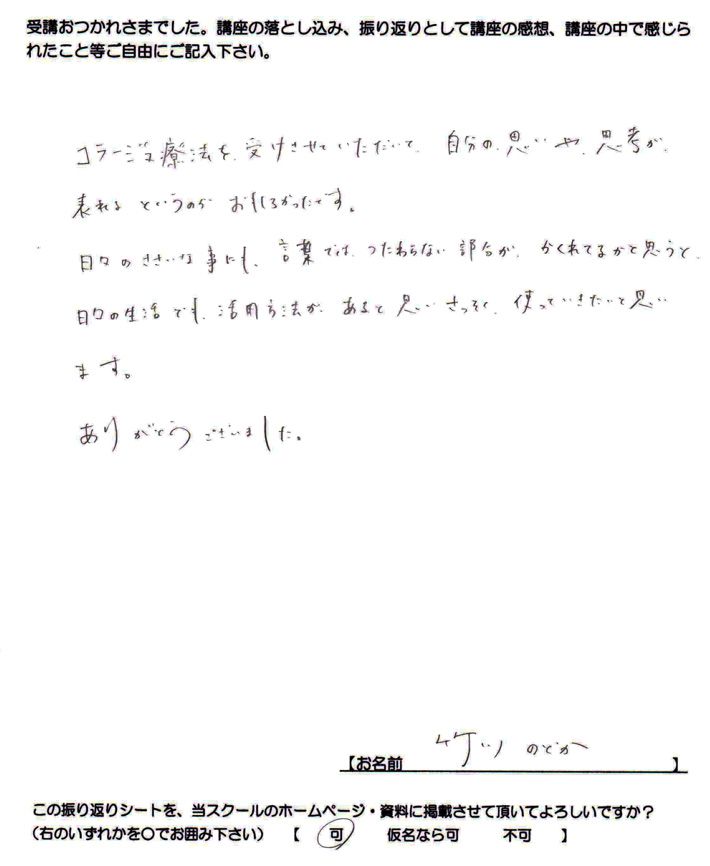 受講おつかれさまでした。講座の落とし込み、振り返りとして講座の感想、講座の中で感じら
れたこと等ご自由にご記入下さい。
コラージュ療法を、受けさせていただいて、自分の、思いや、思考が、
表れるというのが おもしろかったです。
日々のささいな事にも、言葉では、つたわらない部分が、かくれてるかと思うと、
日々の生活でも、活用方法が、あると思いさっそく、使っていきたいと思い
ます。
ありがとうございました。
【お名前 のどか 】
この振り返りシートを、当スクールのホームページ・資料に掲載させて頂いてよろしいですか?
(右のいずれかを○でお囲み下さい) 【 可 仮名なら可 不可 】